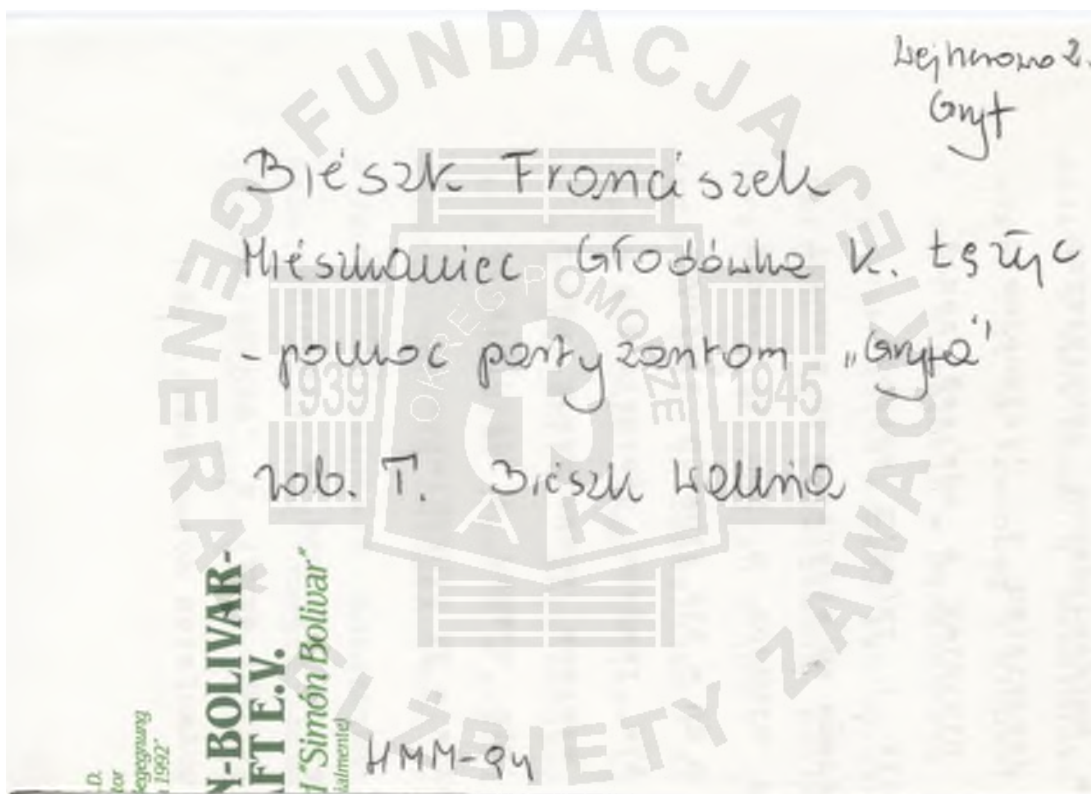 Wejherowo 2.
Gryt
Bieszk Franciszek
Mieszkaniec Głodówka k. Łężyc
- pomoc partyzantom „Gryfa"
zob. T. Bieszk
HMM-94
N-BOLIVAR-
AFT E.V.
d "Simón Bolívar"
ialmente)
D.
tor
egegnung
1992"
FUNDACJA
GENERAŁ
ELŻBIETY ZAWACKIEJ
OKRĘG POMORZE
1939
1945
AK